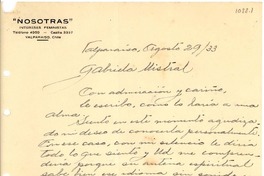 1028.1
"NOSOTRAS"
INTERESES FEMENINOS
Teléfono 4920 - Casilla 3317
VALPARAISO, Chile
Valparaíso, Agosto 29/33
Gabriela Mistral
Con admiración y cariño,
le escribo, como lo haría a una
alma.
Siento en este momento agudizada
mi deseo de conocerla personalmente.
Por ese caso, con mi silencio le diría
todo lo que siento y Ud. me comprendería
porque su antena espiritual
sabe leer ese idioma sin sonido